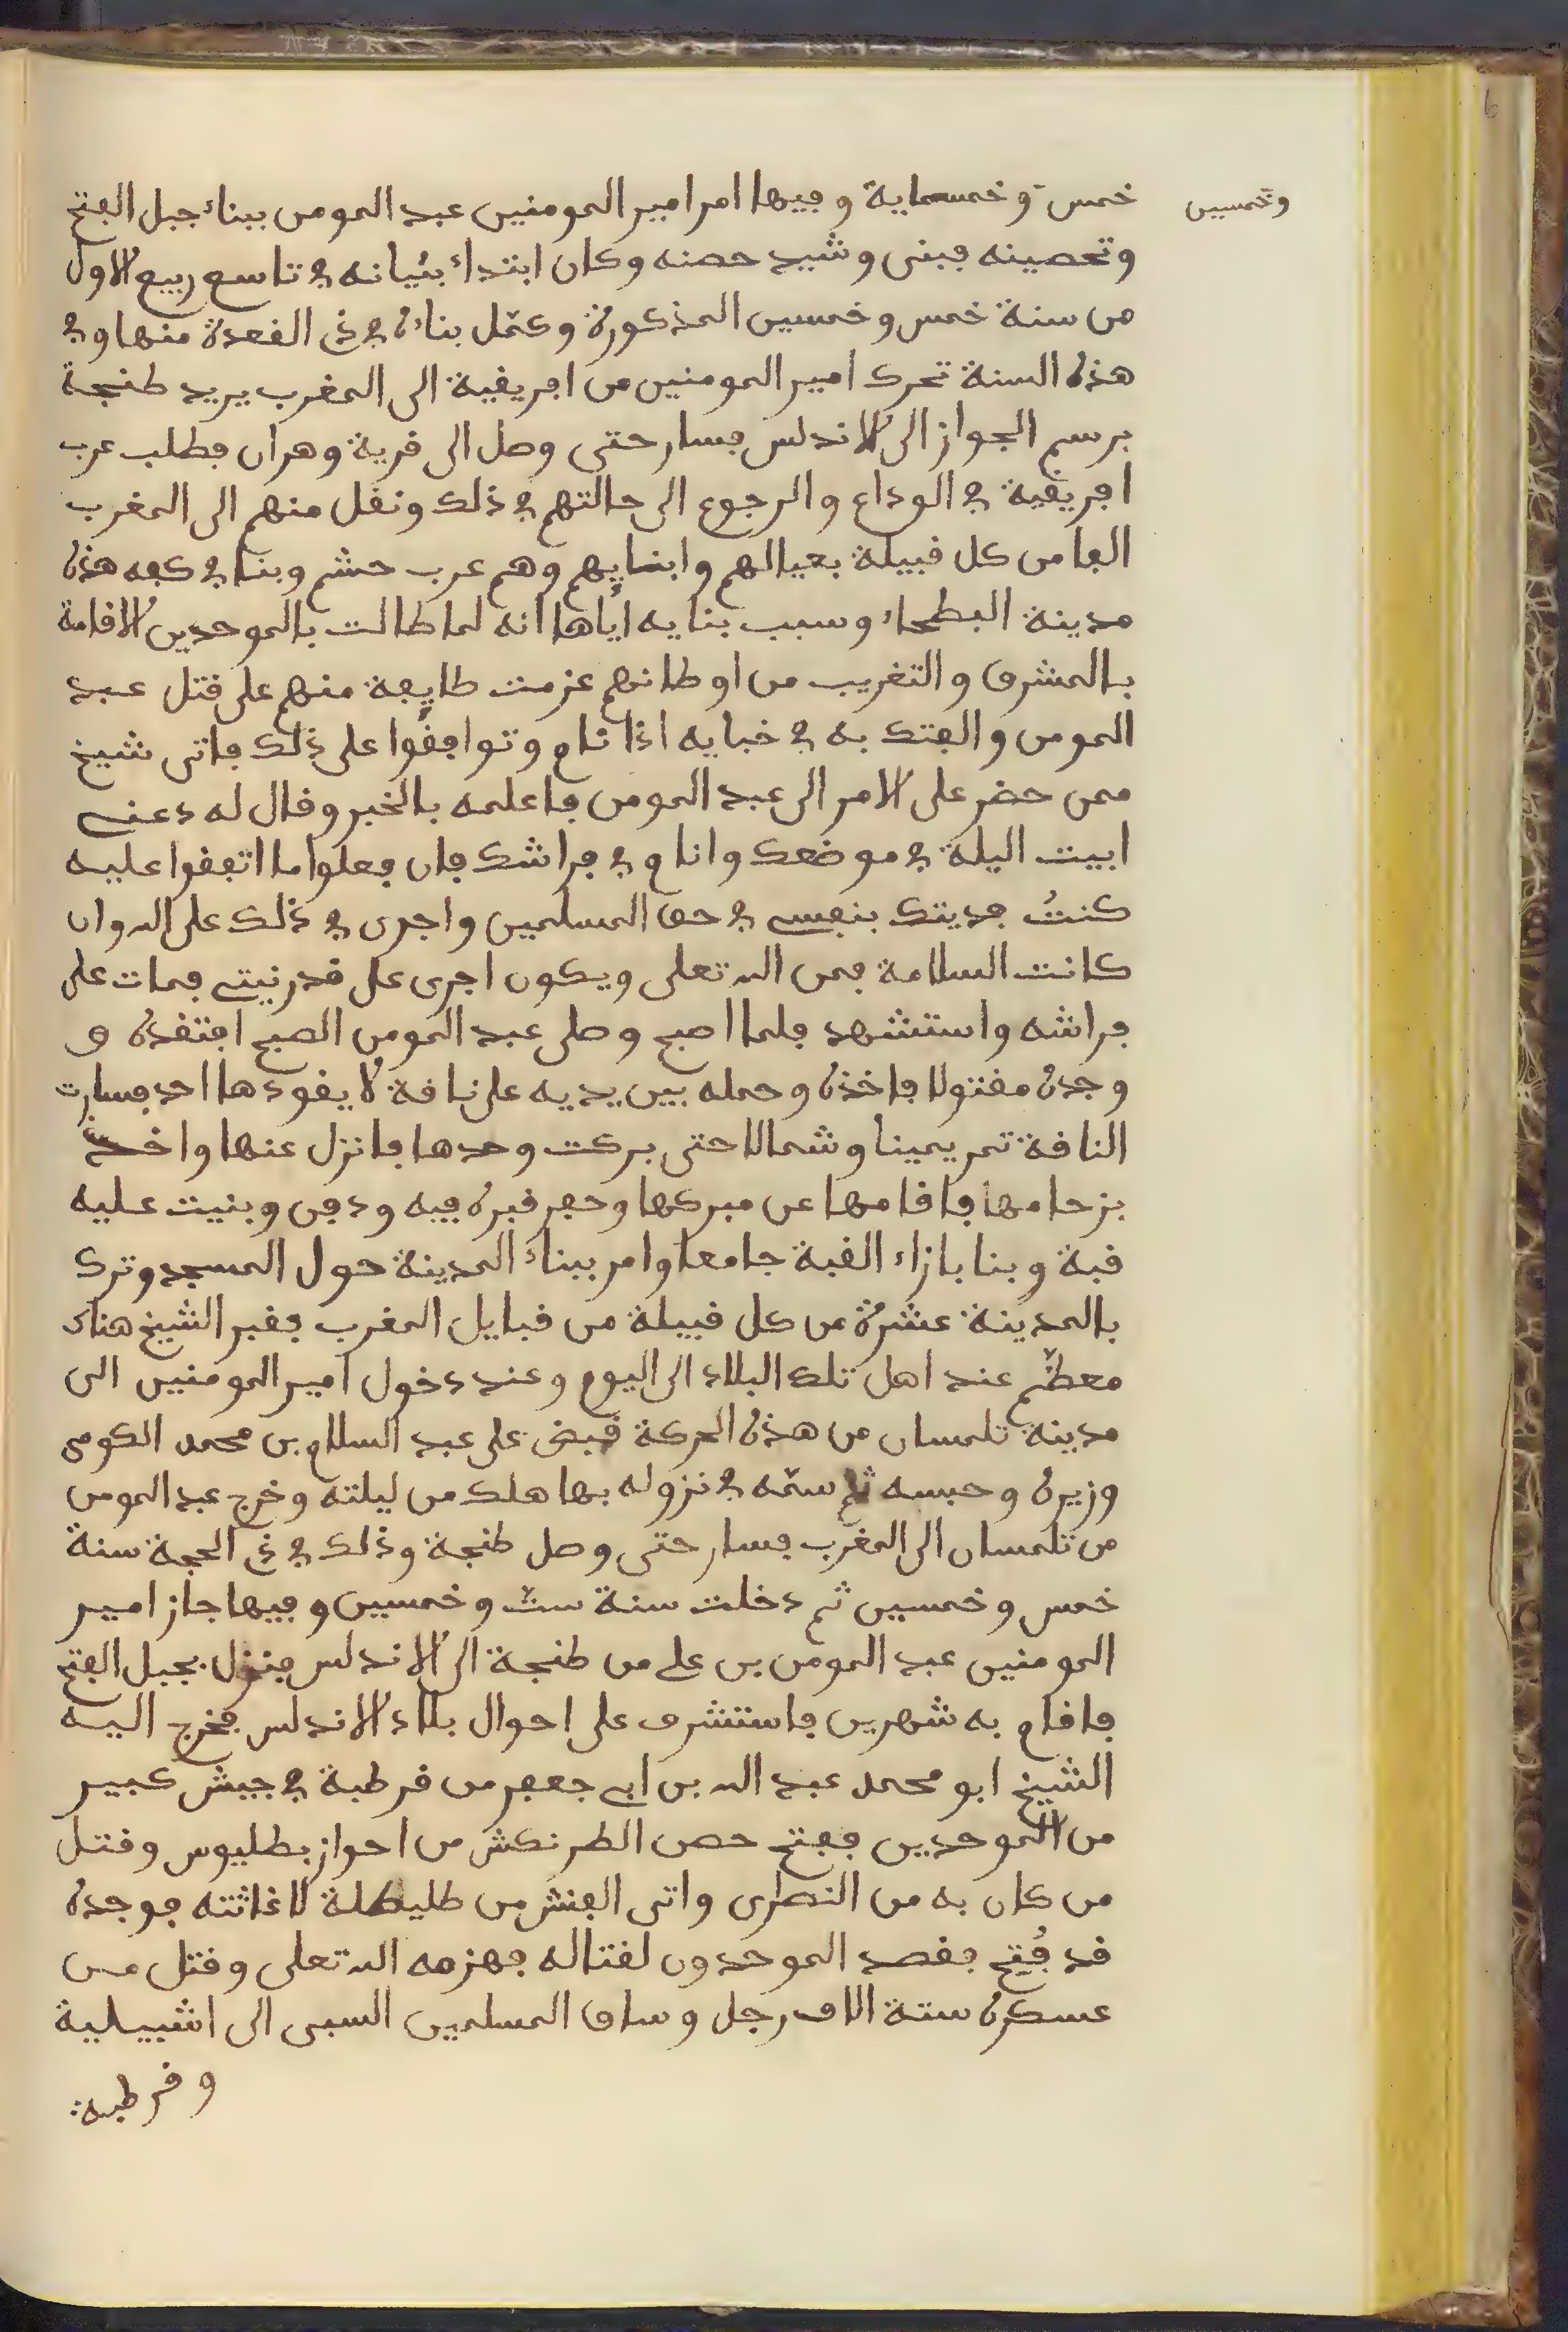 وخمسين
خمس و خمسماية و فيها امر امير المومنين عبد المومن ببناء جبل الفتح
وتحصينه فبنى و شيد حصنه وكان ابتداء بنيانه في تاسع ربيع الاول
من سنة خمس و خمسين المذكورة و كمّل بناءه في ذي القعدة منها و في
هذه السنة تحرك امير المومنين من افريقية الى المغرب يريد طنجة
برسم الجواز الى الاندلس فسار حتى وصل الى قرية وهران فطلب عرب
افريقية في الوداع والرجوع الى حالتهم في ذلك ونقل منهم الى المغرب
الفا من كل قبيلة بعيالهم وابنايهم وهم عرب جشم وبنا في كهه هذه
مدينة البطحاء وسبب بنايه اياها انه لما طالت بالموحدين الاقامة
بالمشرق والتغريب من اوطانهم عزمت طايفة منهم على قتل عبد
المومن والفتك به في خبايه اذا نام وتوافقوا على ذلك فاتى شيخ
ممن حضر على الامر الى عبد المومن فاعلمه بالخبر وقال له دعني
ابيت اليلة في موضعك وانام في فراشك فان فعلوا ما اتفقوا عليه
كنتُ فديتك بنفسي في حق المسلمين واجرى في ذلك على الله وان
كانت السلامة فمن الله تعلى ويكون اجرى على قدر نيتي فمات على
فراشه واستشهد فلما اصبح وصلى عبد المومن الصبح افتقده و
وجده مقتولا فاخذه وحمله بين يديه على ناقة لا يقودها احد فسارت
الناقة تمر يمينا وشمالا حتى بركت وحدها فانزل عنها واخذ
بزمامها فاقامها عن مبركها وحفر قبره فيه ودفن وبنيت عليه
قبة وبنا بازاء القبة جامعا وامر ببناء المدينة حول المسجد وترك
بالمدينة عشرة من كل قبيلة من قبايل المغرب فقبر الشيخ هناك
معظّم عند اهل تلك البلاد الى اليوم وعند دخول امير المومنين الى
مدينة تلمسان من هذه الحركة قبض على عبد السلام بن محمد الكومى
وزيره وحبسه ثم سمّه في نزوله بها هلك من ليلته وخرج عبد المومن
من تلمسان الى المغرب فسار حتى وصل طنجة وذلك في ذي الحجة سنة
خمس وخمسين ثم دخلت سنة ستّ وخمسين وفيها جاز امير
المومنين عبد المومن بن علي من طنجة الى الاندلس فنزل بجبل الفتح
فاقام به شهرين فاستشرف على احوال بلاد الاندلس فخرج اليه
الشيخ ابو محمد عبد الله بن ابي جعفر من قرطبة في جيش كبير
من الموحدين ففتح حصن الطرنكش من احواز بطليوس وقتل
من كان به من النصرى واتى الفنش من طليطلة لاغاثته فوجده
قد فُتح فقصد الموحدون لقتاله فهزمه الله تعلى وقتل من
عسكره ستة الاف رجل وساق المسلمين السبى الى اشبيلية
وقرطبة